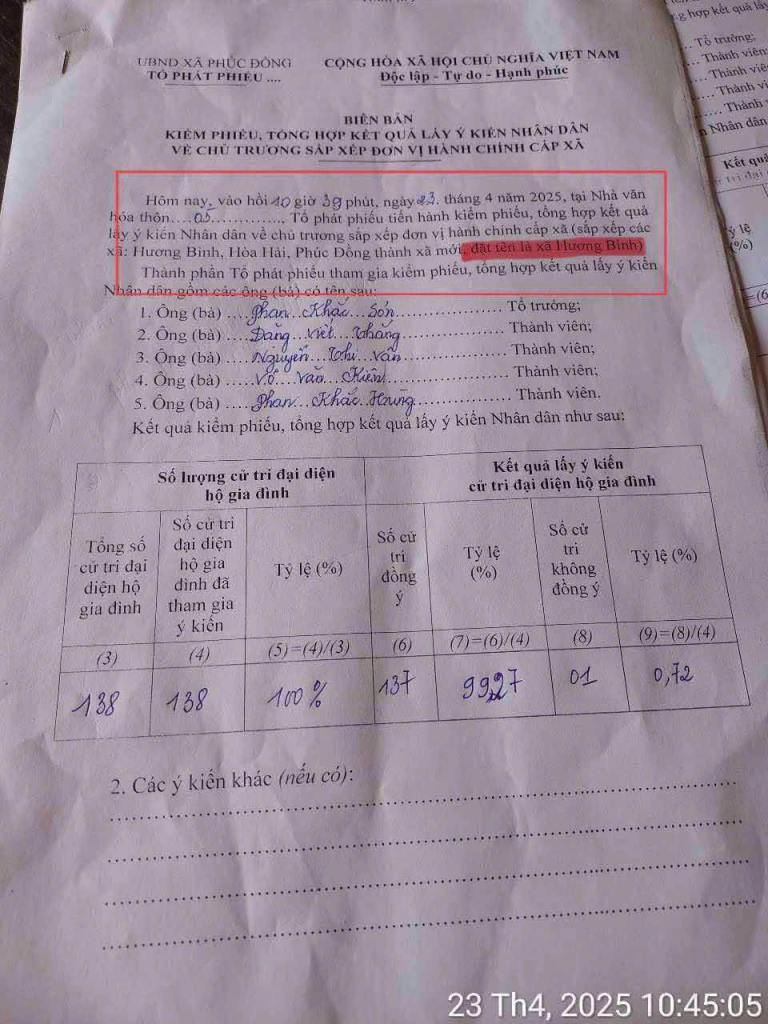 UBND XÃ PHÚC ĐỒNG
TỔ PHÁT PHIẾU ....
CỘNG HÒA XÃ HỘI CHỦ NGHĨA VIỆT NAM
Độc lập - Tự do - Hạnh phúc
BIÊN BẢN
KIỂM PHIẾU, TỔNG HỢP KẾT QUẢ LẤY Ý KIẾN NHÂN DÂN
VỀ CHỦ TRƯƠNG SẮP XẾP ĐƠN VỊ HÀNH CHÍNH CẤP XÃ
Hôm nay, vào hồi 10 giờ 39 phút, ngày 23. tháng 4 năm 2025, tại Nhà văn
hóa thôn....05............., Tổ phát phiếu tiến hành kiểm phiếu, tổng hợp kết quả
lấy ý kiến Nhân dân về chủ trương sắp xếp đơn vị hành chính cấp xã (sắp xếp các
xã: Hương Bình, Hòa Hải, Phúc Đồng thành xã mới, đặt tên là xã Hương Bình)
Thành phần Tổ phát phiếu tham gia kiểm phiếu, tổng hợp kết quả lấy ý kiến
Nhân dân gồm các ông (bà) có tên sau:
1. Ông (bà) ....Phan...Khắc...Sơn.................... Tổ trưởng;
2. Ông (bà) ....Đặng...Viết...Thắng.................... Thành viên;
3. Ông (bà) ....Nguyễn...Thị...Vân.................... Thành viên;
4. Ông (bà) ....Võ...Văn...Kiên.................... Thành viên;
5. Ông (bà) ....Phan...Khắc...Hưng.................... Thành viên.
Kết quả kiểm phiếu, tổng hợp kết quả lấy ý kiến Nhân dân như sau:
Số lượng cử tri đại diện
hộ gia đình
Kết quả lấy ý kiến
cử tri đại diện hộ gia đình
Tổng số
cử tri đại
diện hộ
gia đình
Số cử tri
đại diện
hộ gia
đình đã
tham gia
ý kiến
Tỷ lệ (%)
Số cử
tri
đồng
ý
Tỷ lệ
(%)
Số cử
tri
không
đồng ý
Tỷ lệ (%)
(3) (4) (5)=(4)/(3) (6) (7)=(6)/(4) (8) (9)=(8)/(4)
138 138 100% 137 99,27 01 0,72
2. Các ý kiến khác (nếu có):
g hợp kết quả lấy
Tổ trưởng;
Thành viên;
Thành viên
Thành vi
Thành
n Nhân dân
Kết quả
tri đại
lệ
(%)
23 Th4, 2025 10:45:05